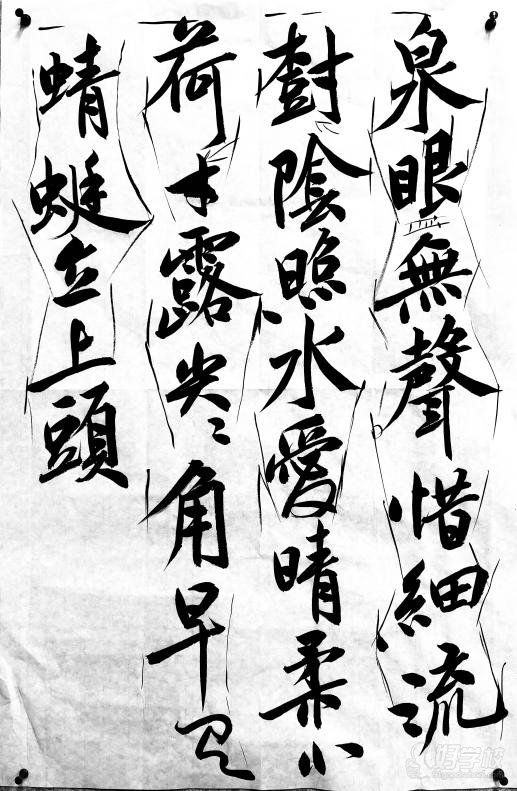 泉眼無聲惜細流
樹陰照水愛晴柔小
荷才露尖〻角早有
蜻蜓立上頭
好学校